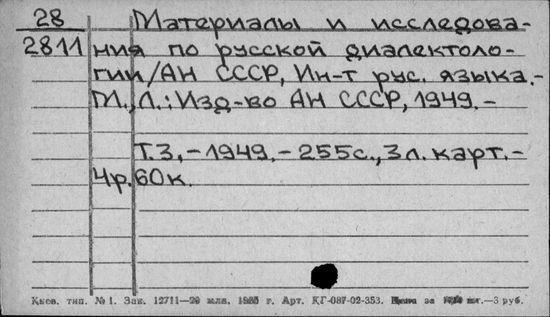 28 Материалы и исследова-
2811 ния по русской диалектоло-
гии/АН СССР, Ин-т рус. языка.-
М., Л.: Изд-во АН СССР, 1949.-
Т.3,-1949.-255с., 3л. карт.-
4р. 60к.
Киев. тип. №1. Зак. 12711—20 млн. г. Арт. КГ-087-02-353. Цена за шт.—3 руб.